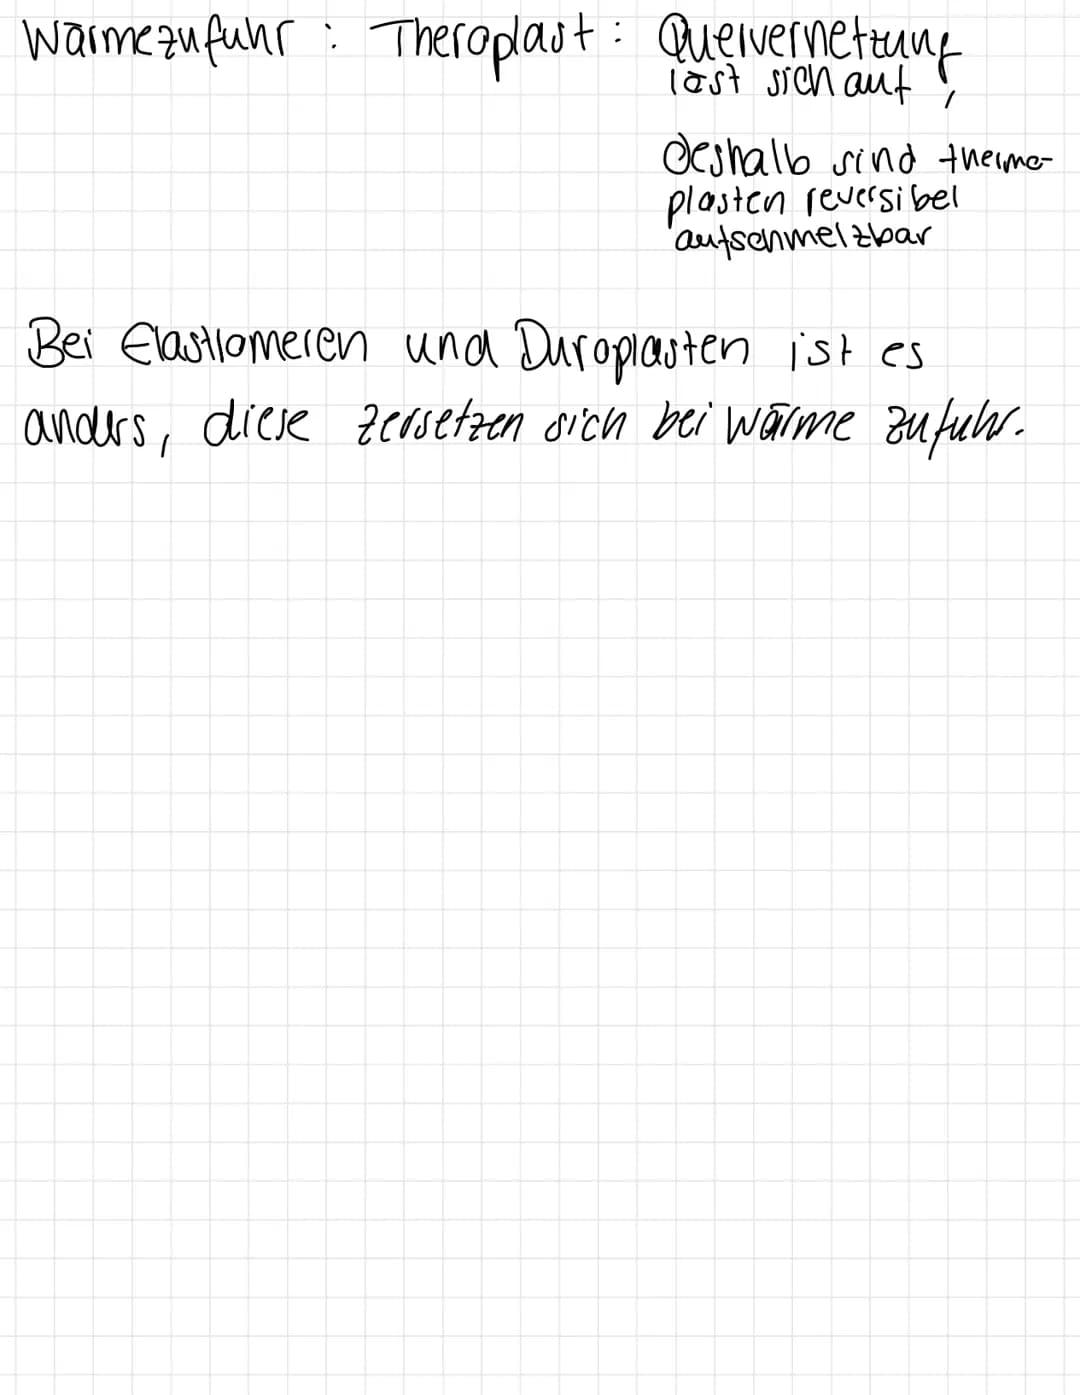 Wärmezufuhr : Theroplast : Quervernetzung
löst sich auf,
deshalb sind thermo-
plasten reversibel
aufschmeltzbar
Bei Elastlomeren und Duroplasten ist es
anders, diese zersetzen sich bei Wärme zufuhr.